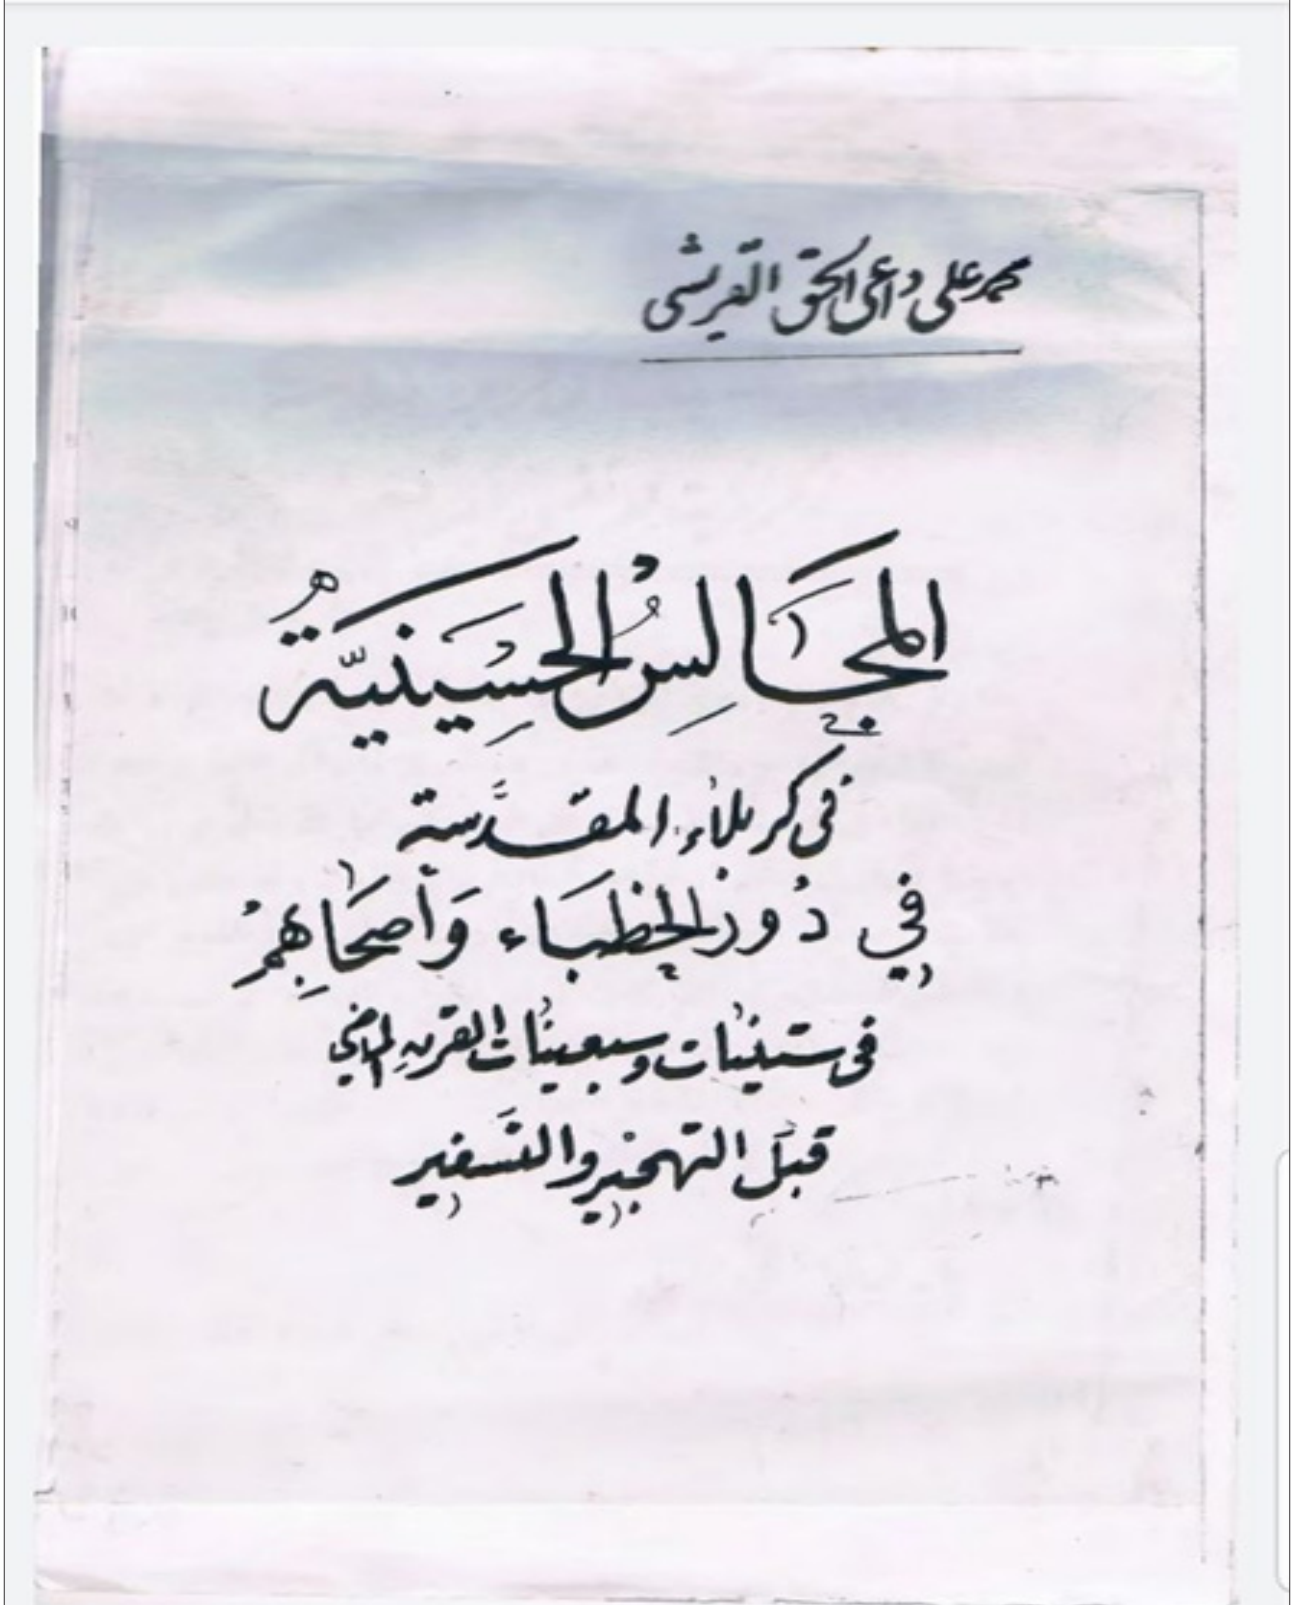 محمد علي داعي الحق القريشي
المجَالِسُ الحُسَينِيّةُ
في كربلاء المقدَّسة
في دُورِ الخطبَاء وَأصحَابِهِمْ
في ستينات وسبعينات القرنِ الماضي
قبلَ التهجيرِ والتسَفيرِ